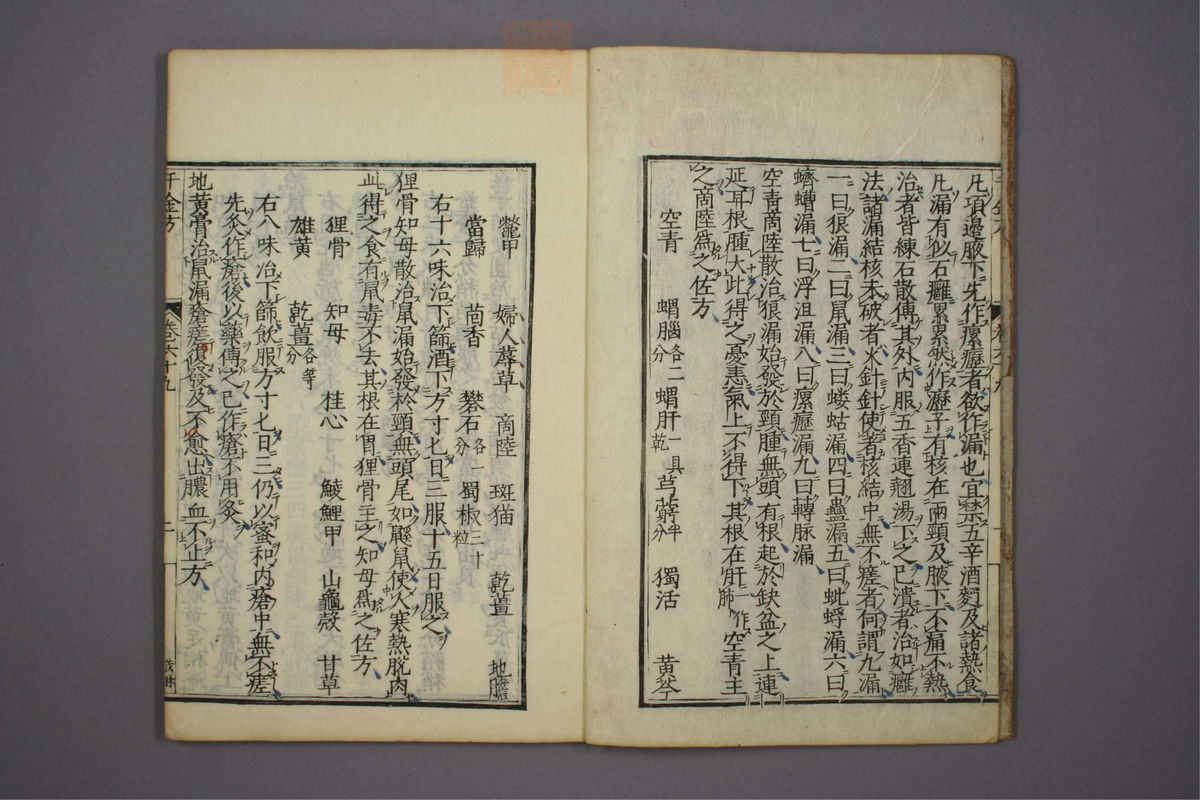 凡項邊腋下先作瘰癧者欲作漏也宜禁五辛酒麪及諸熱食
凡漏有似石癰累累然作瀝子有核在兩頸及腋下不痛不熱
治者皆練石散傅其外內服五香連翹湯下之已潰者治如癰
法諸漏結核未破者火針針使著核結中無不瘥者何謂九漏
一曰狼漏二曰鼠漏三曰螻蛄漏四曰蟲漏五曰蚍蜉漏六曰
蠐螬漏七曰浮沮漏八曰瘰癧漏九曰轉脉漏
空青商陸散治狼漏始發於頸腫無頭有根起於缺盆之上連
延耳根腫大此得之憂恚氣上不得下其根在肝一作肺空青主
之商陸爲之佐方
空青 蝟腦各二分 蝟肝一具乾 芎藭半分 獨活 黃芩
鼈甲 婦人蓐草 商陸 斑猫 乾薑 地膽
當歸 茴香 礬石各一分 蜀椒三十粒
右十六味治下篩酒下方寸七日三服十五日服之
狸骨知母散治鼠漏始發於頸無頭尾如鼷鼠使人寒熱脫肉
此得之食有鼠毒不去其根在胃狸骨主之知母爲之佐方
狸骨 知母 桂心 鯪鯉甲 山龜殼 甘草
雄黃 乾薑各等分
右八味治下篩飲服方寸七日三仍以蜜和內瘡中無不瘥
先灸作瘡後以藥傅之已作瘡不用灸
地黃膏治鼠漏瘡瘥復發及不愈出膿血不止方
千金方 卷六十九 二